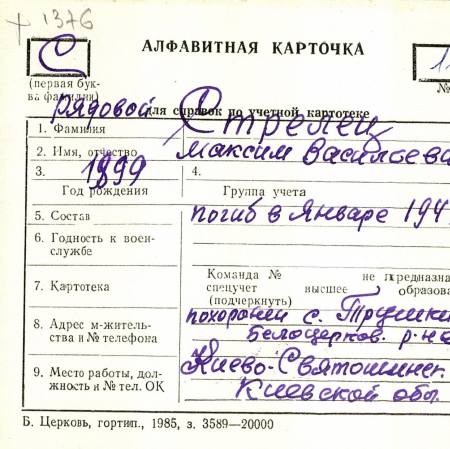 + 1376
С
АЛФАВИТНАЯ КАРТОЧКА
11
(первая бук-
ва фамилии)
№
для справок по учетной картотеке
рядовой
1. Фамилия Стрелец
2. Имя, отчество Максим Васильева
3. 1899 4.
Год рождения Группа учета
5. Состав погиб в январе 194
6. Годность к воен-
службе
Команда № не предназна
7. Картотека спецучет высшее образова
(подчеркнуть)
похоронен с. Трушки
8. Адрес м-житель-
ства и № телефона Белоцерков. р-на
9. Место работы, дол-
жность и № тел. ОК Киево-Святошинск.
Киевской обл.
Б. Церковь, гортип., 1985, з. 3589—20000